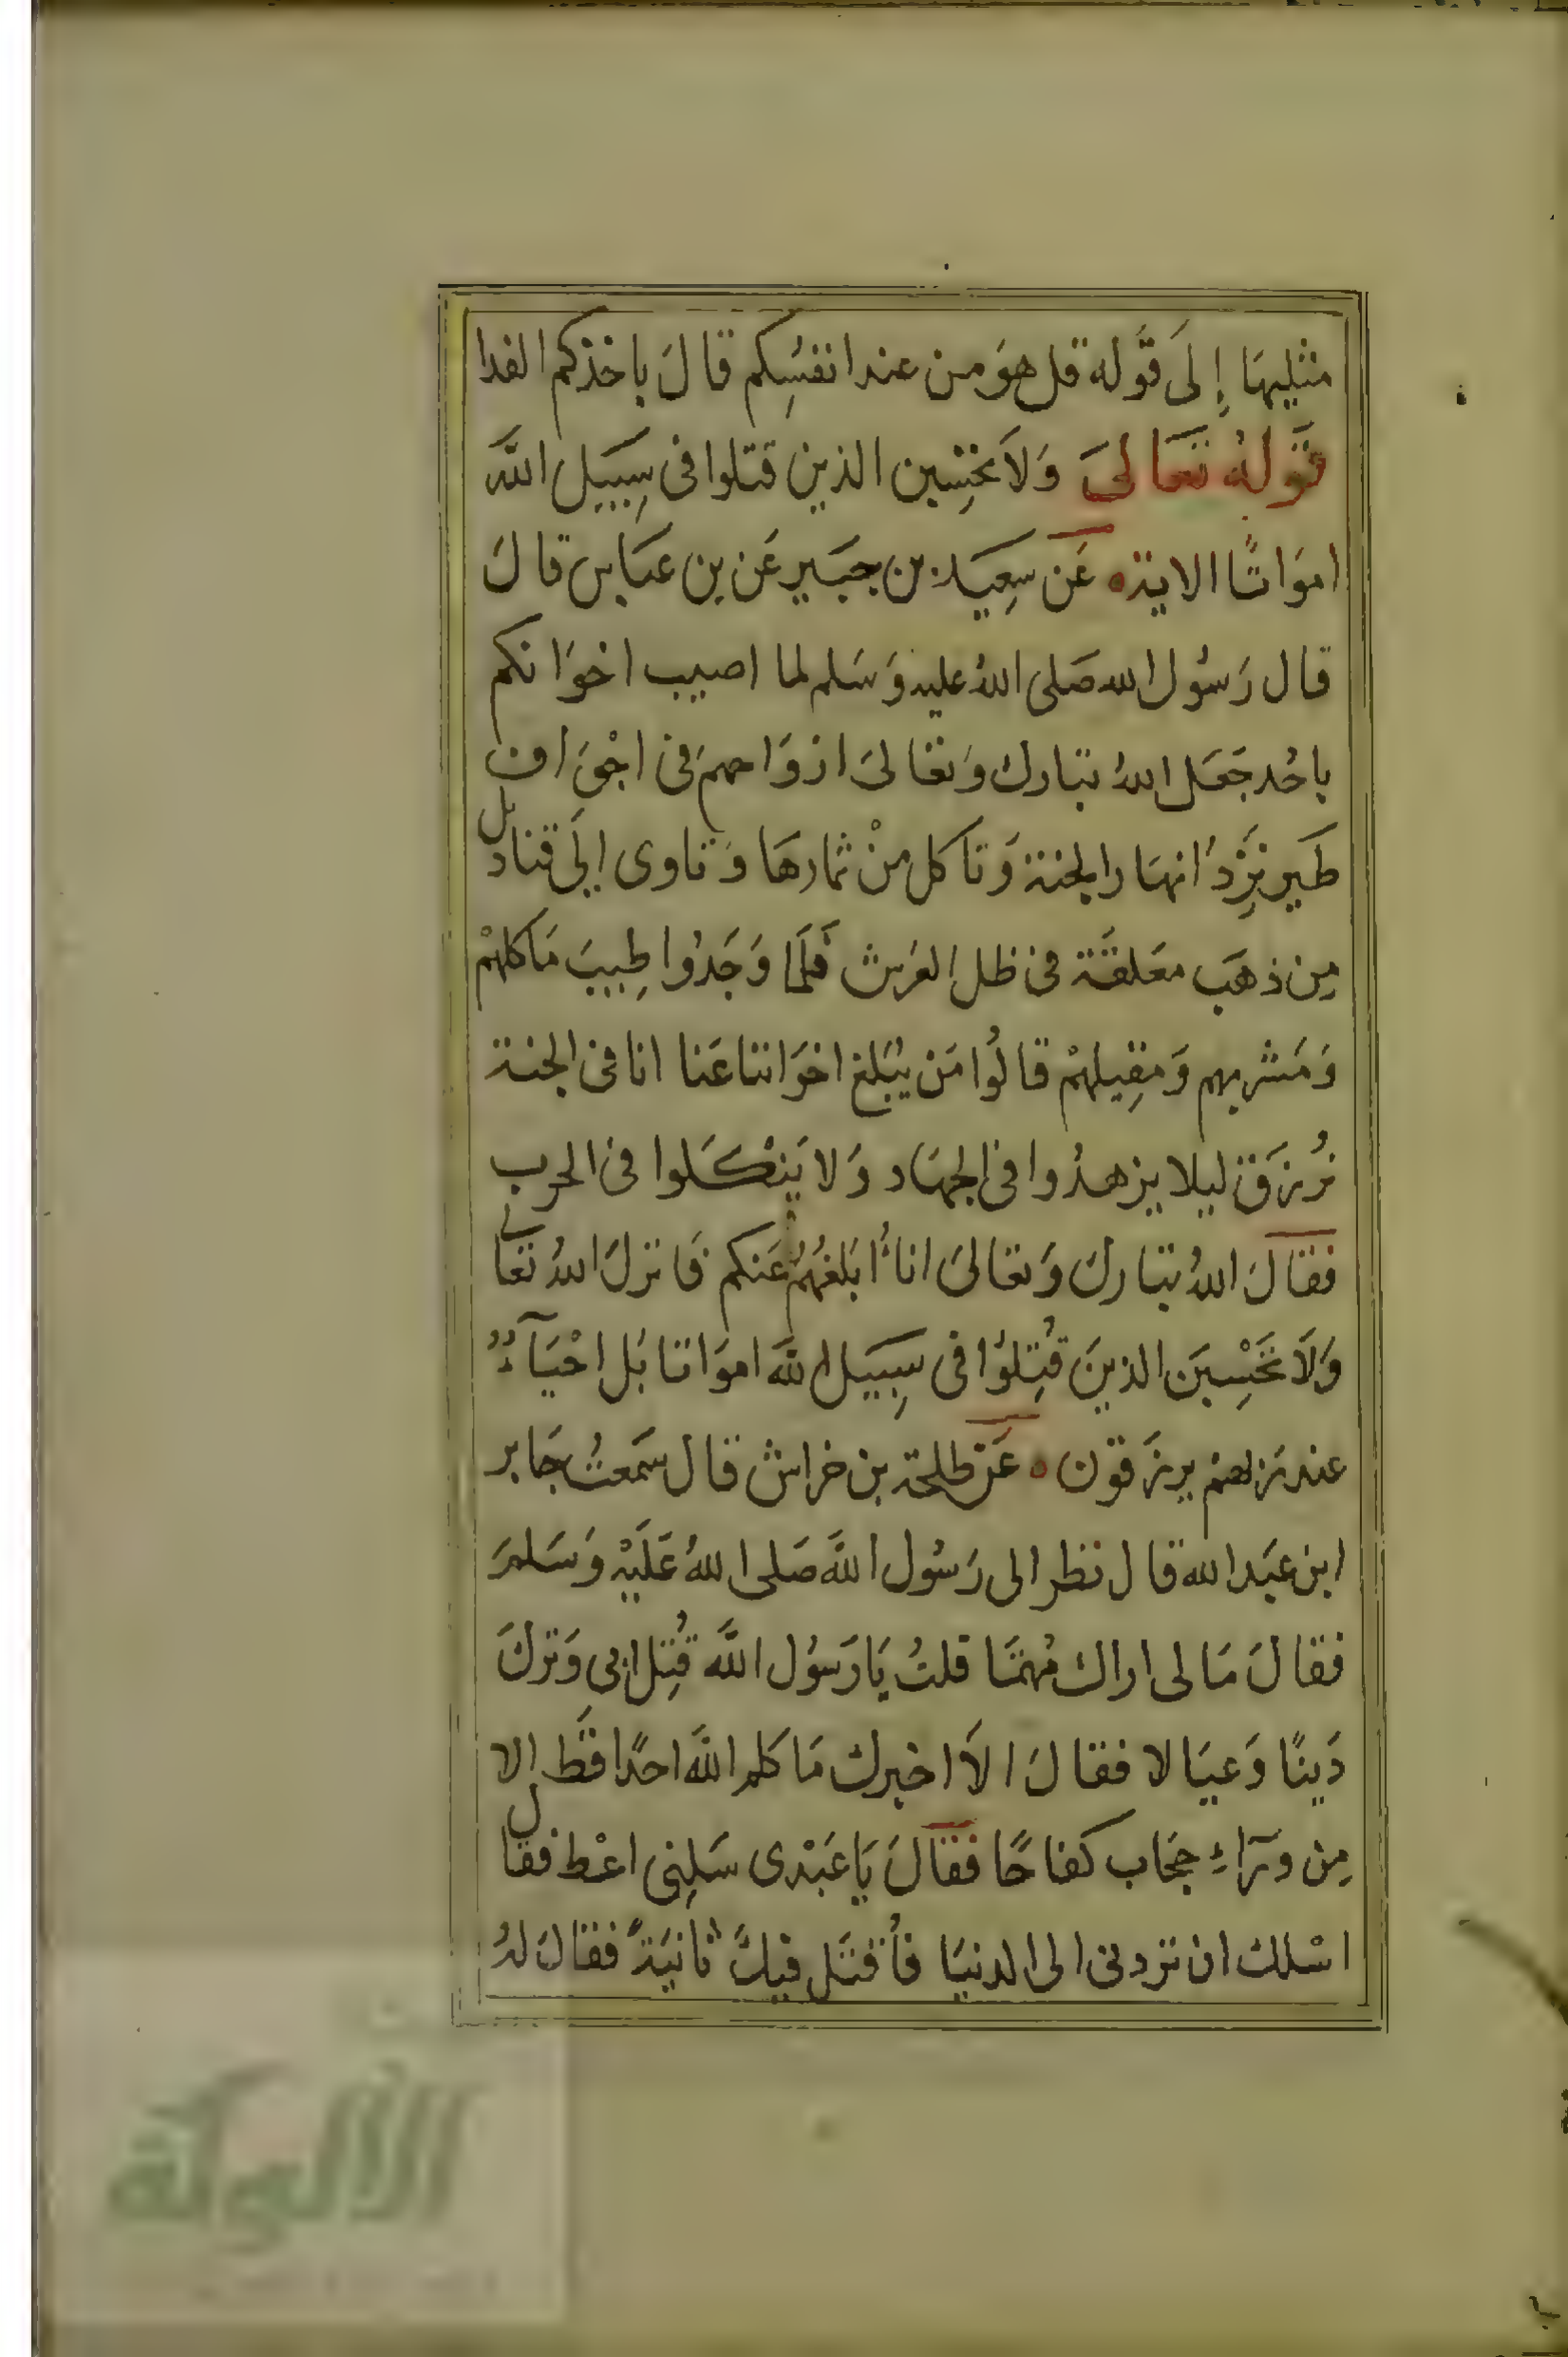 مثليها إِلَى قَوله قل هوَ من عند انفسِكم قالَ باخذكم الفدا
قَولهُ تعَالىَ وَلاَ تحَسِبن الذين قتلوا فى سِبَيل اللَّه
اموَاتًا الاية ه عَن سِعِيَد بن جبَير عَن بن عبَاس قالَ
قال رَسُول الله صَلى اللهُ عليه وَسَلم لما اصيب اخوَانكم
باحُد جَعَل اللهُ تبَارك وَتعَالىَ ارْوَاحهمَ فى اجْوَاف
طَير تَرِدُ انهَار الجنة وَتاكل منْ ثمارهَا وَتاوى إلَى قناديل
مِن ذهَب معَلقَة فى ظل العَرش فَلَمَا وَجَدُوا طِيبَ مَاكلهْم
وَمَشربهم وَمَقِيلهْم قالُوا مَن يُبَلغ اخوَاننا عَنا انا فى الجنة
نُرزَق ليلا يزهدُوا فى الجهَاد وَلا يَنْكَلوا فى الحرب
فقَالَ اللهُ تبَارك وَتعَالىَ اناَ أُبَلغُهُمُ عَنكم فَانزلَ اللهُ تعَالى
وَلَا تَحَسِْبَن الذينَ قُتِلوُا فى سِبَيَل اللَّه اموَاتا بَل احْيَآءٌ
عند رَبهمْ يرزَقون ه عَن طلحة بن خراش قال سَمعتُ جَابر
ابن عبَد الله قال نظر الى رَسُول اللَّه صَلى اللهُ عَلَيْهِ وَسَلمَ
فقالَ مَا لى اراك مُهمَّا قلتُ يَا رَسُول اللَّه قُتِل ابى وَتركَ
دَينًا وَعيَالا فقالَ الاَ اخبرك مَا كلم اللَّه احَدًا قَط إلا
مِن وَرَآءِ حجَاب كفاحًا فقَالَ يَا عَبْدى سَلِنى اعْط فقال
اسْلك ان تردنى الى الدنيَا فأُقتَل فيكَ ثانيَةً فقالَ لهُ
الألوكة